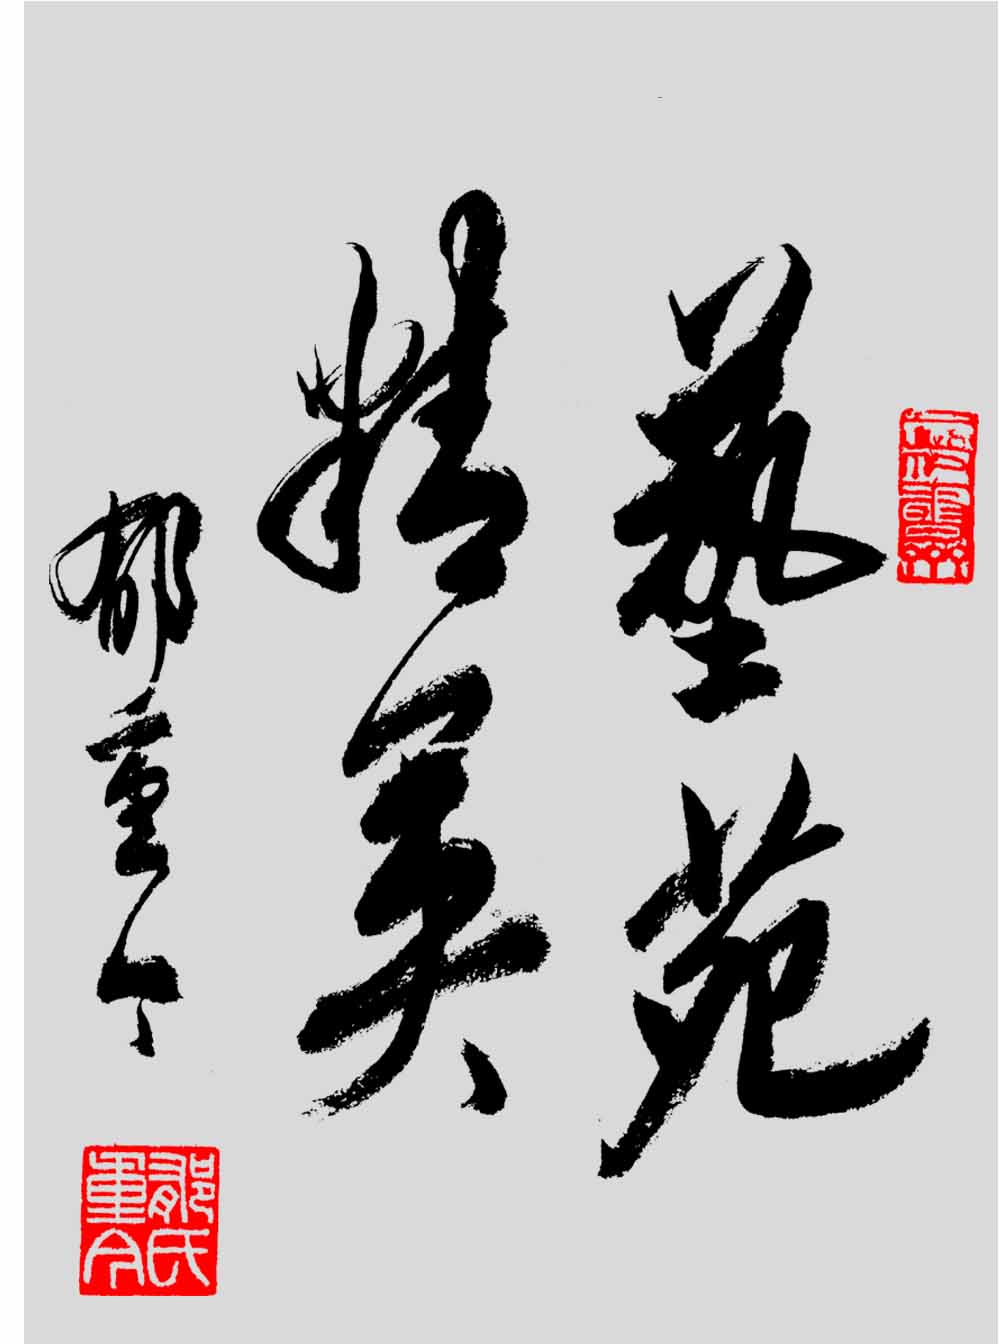 藝苑
精英
郁重今
郁氏
重今